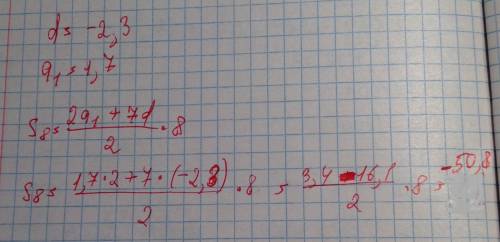 d = -2,3
a₁ = 1,7
S₈ = (2a₁ + 7d)/2 · 8
S₈ = (1,7·2 + 7·(-2,3))/2 · 8 = (3,4 - 16,1)/2 · 8 = -50,8